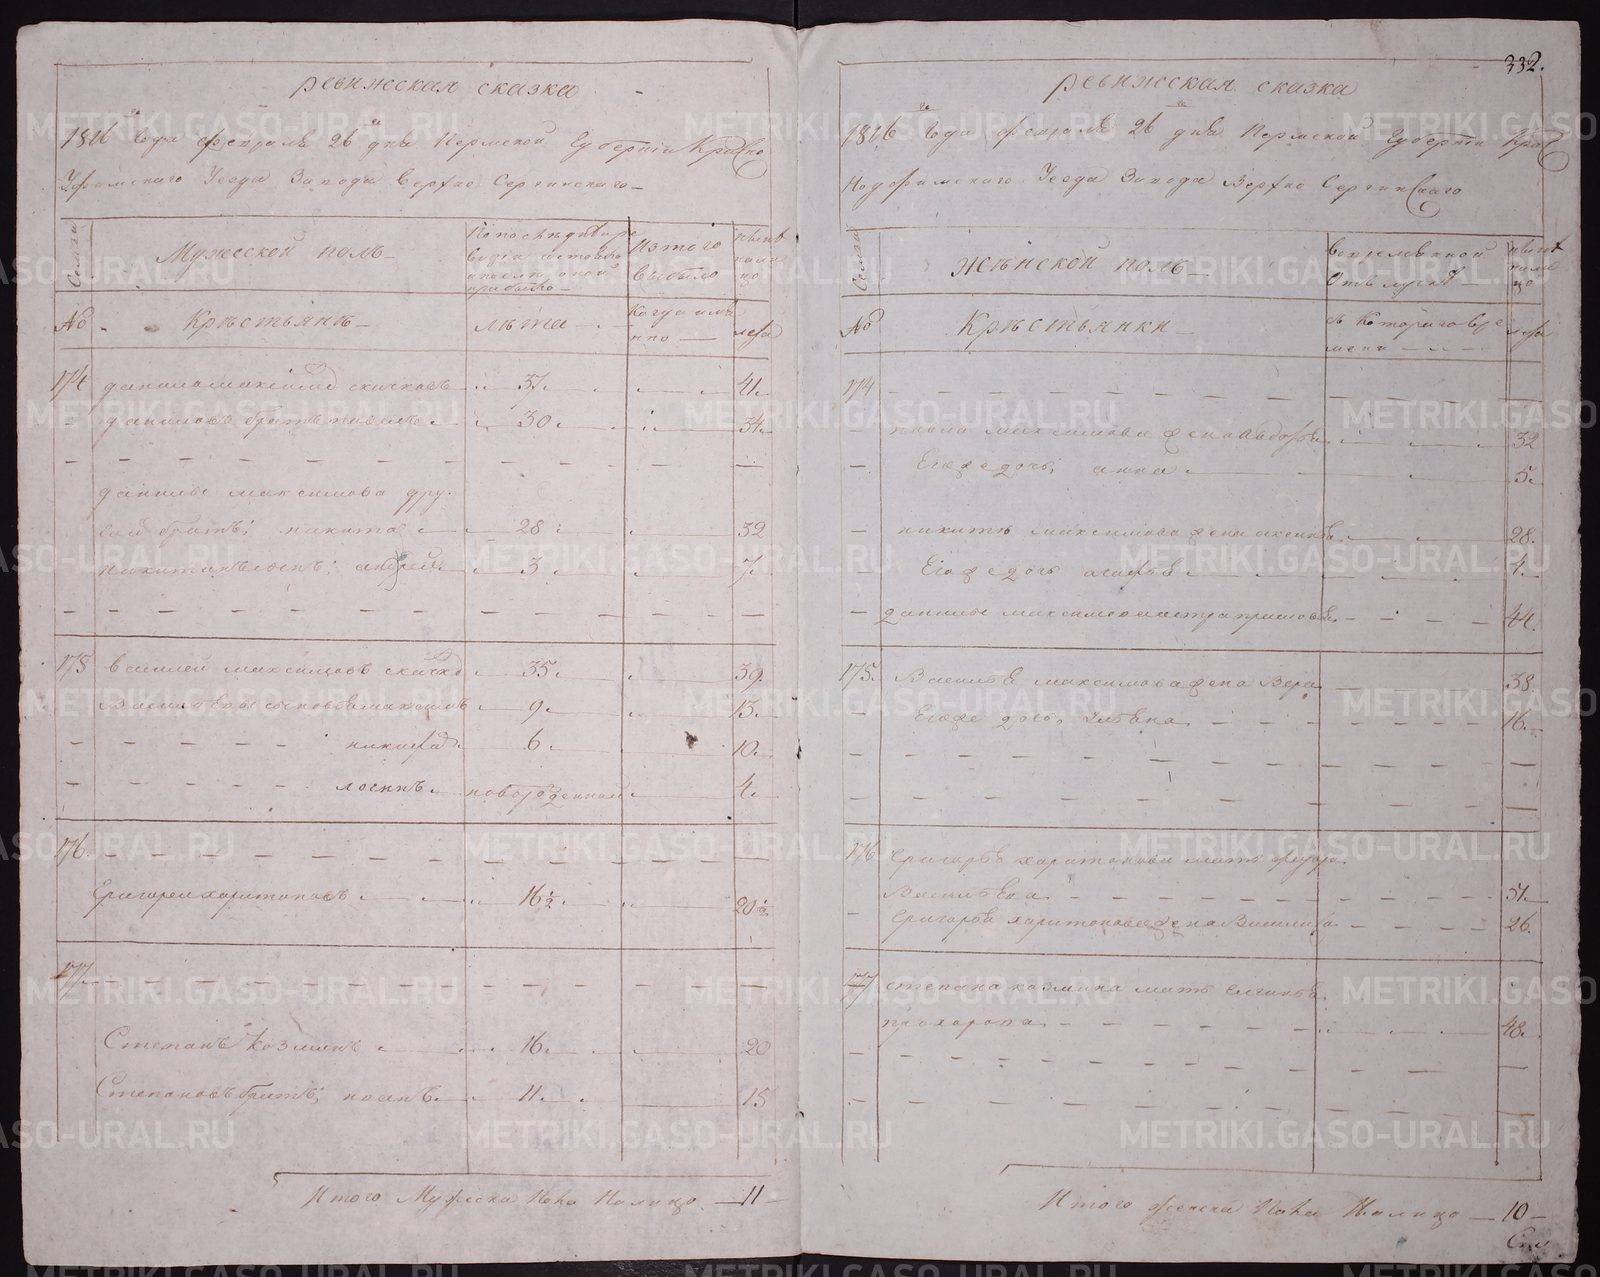 ревижская сказка
1816 Года февраля 26 дня Пермской Губернiи Красно
Уфимскаго Уезда Завода Верхно Сергинскаго
Семьи
Мужеской полъ
Изтого выбыло
ныне на лицо
№
Крѣстьянѣ
лѣта
Когда имянно
лета
174 данило максимов скачковъ 37 41
даниловъ братъ павелъ 30 34
данилы максимова дру
гой братъ никита 28 32
никитинъ сынъ андрей 3 7
175 василей максимовъ скачко 35 39
Васильевы сыновья максимъ 9 13
никифоръ 6 10
новорожденной 4
176
Григореи харитоновъ 16½ 20½
177
Степанъ Козминъ 16 20
Степановъ братъ 11 15
Итого Мужеска Пола Налицо 11
332.
ревижская сказка
1816 Года февраля 26 дня Пермской Губернiи Крас
ноуфимскаго Уезда Завода Верхно Сергинскаго
Семьи
Женской полъ
Вовременной Отлучке
ныне на лицо
№
Крѣстьянки
съ Котораго време
мени
лета
174
павла максимова жена 32
Егоже дочь анна 5
никиты максимова жена аксинья 28
Егоже дочь агафья 1
данилы максимова 44
175 Василья максимова жена Вера 38
Егоже дочь Ульяна 16
176 Григорья харитонова мать
Васильева 51
Григорья харитонова жена Василиса 26
177 степана козмина мать
прохорова 48
Итого женска Пола Налицо 10
METRIKI.GASO-URAL.RU